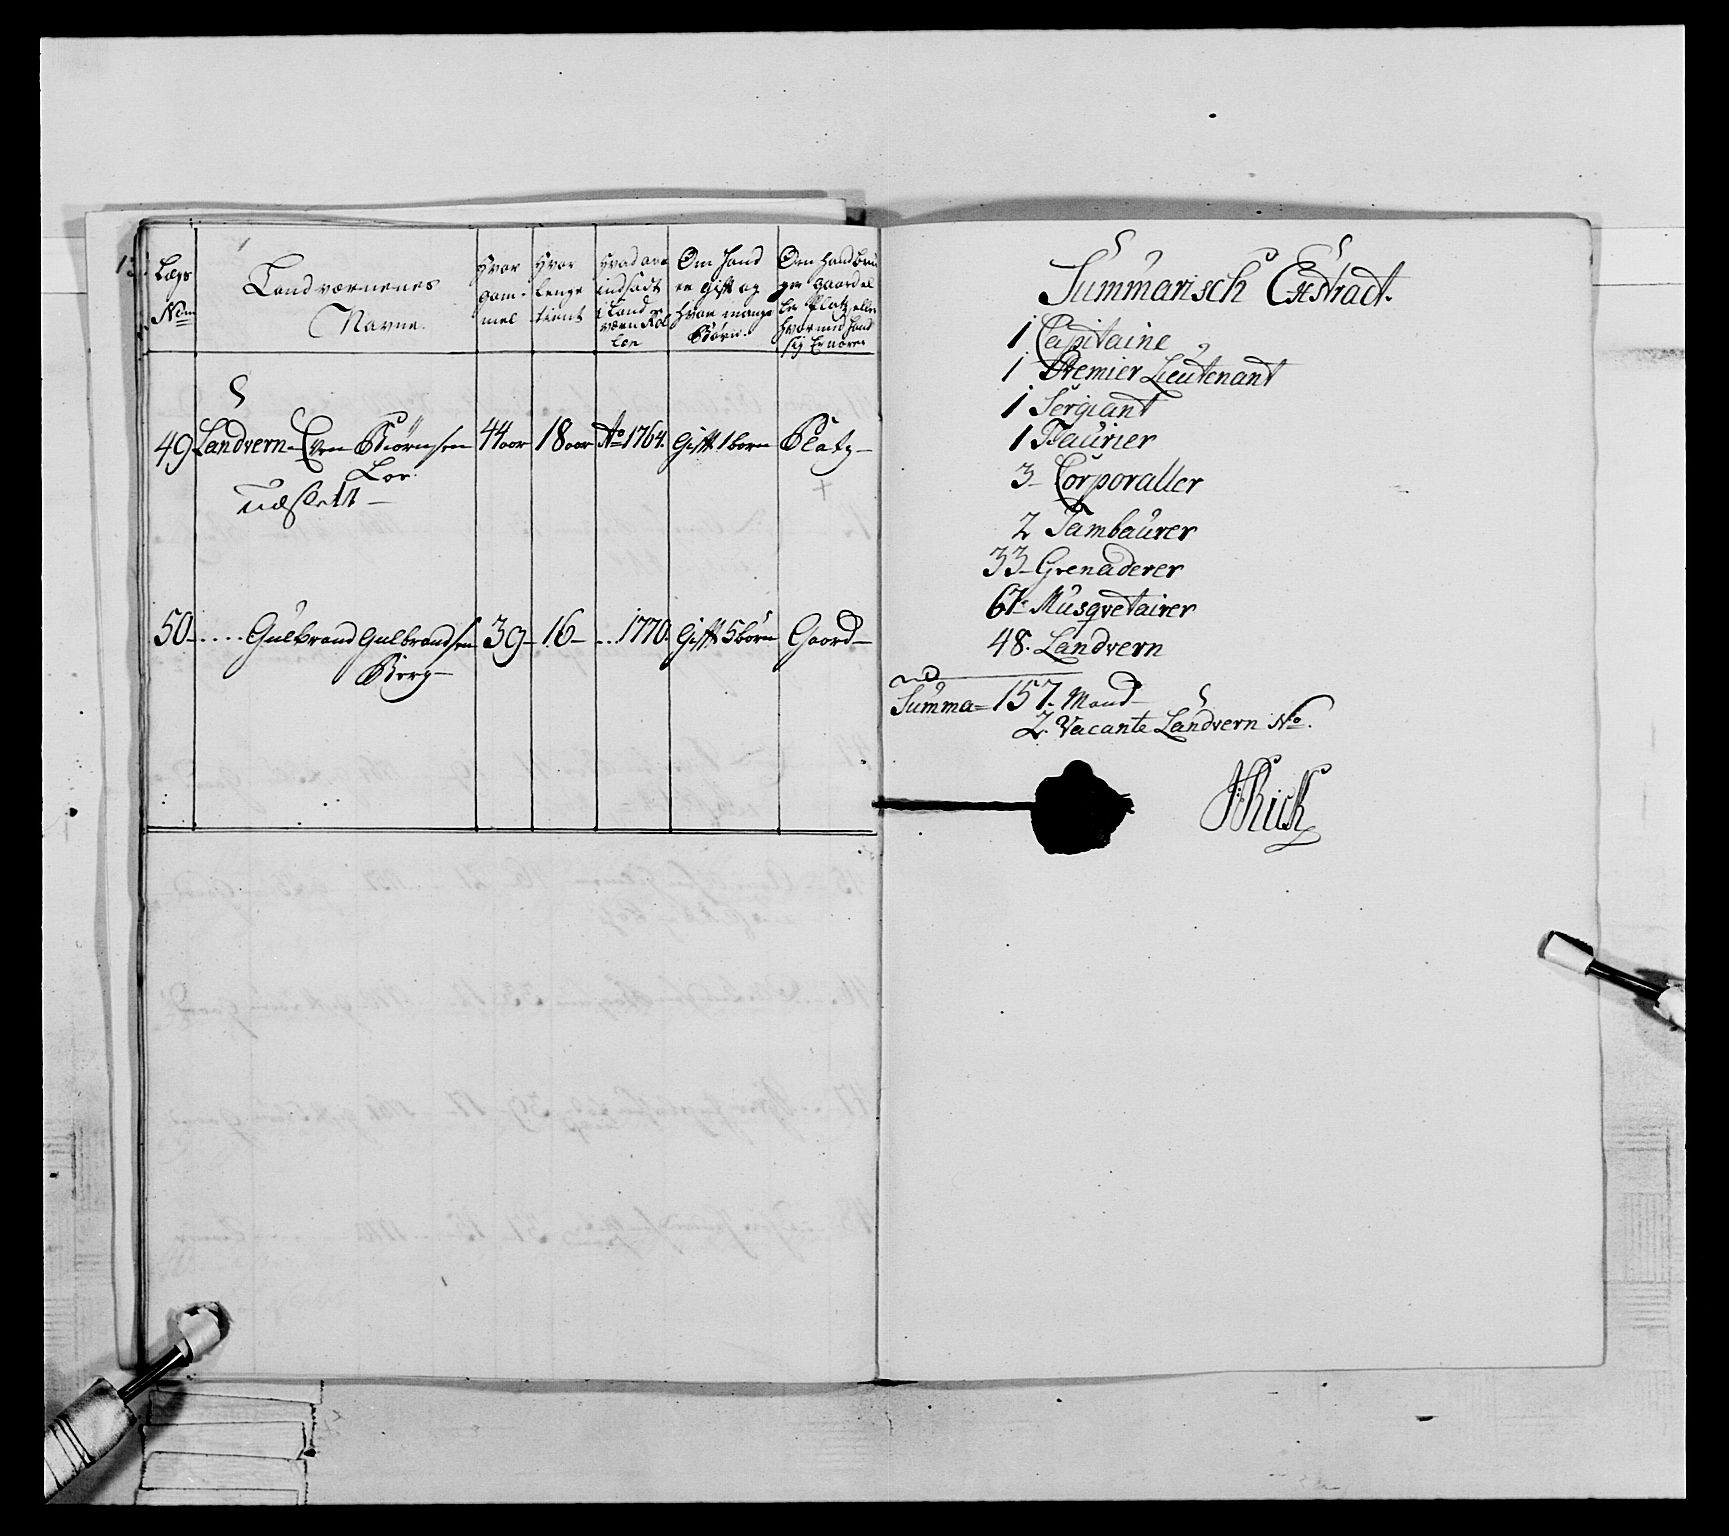 Lægs
Nom
Landværnenes
Navne.
Hvor
gam-
mel
Hvor
lenge
tient
Hvad aar
indsadt
i Land
værn Rol
len
Om hand
er gift og
hvor mange
Børn.
Om hand bru
ger gaard el
ler Platz eller
hvormed hand
sig Ernærer
49 Landvern Even Biørnsen 44 aar 18 aar Ao 1764. Gift 1 børn Platz
Loe.
udslett
50 Gulbrand Gulbrandsen 39 16 1770. Gift 5 børn Gaard
Berg
Summarisch Extract.
1 Capitaine
1 Premier Lieutenant
1 Sergiant
1 Faurier
3 Corporaller
2 Tambaurer
33 Grenaderer
67 Musqvetairer
48. Landvern
Summa = 157. Mand
2. Vacante Landvern No.